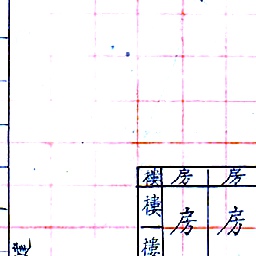 樓 房 房
樓 房 房
一樓